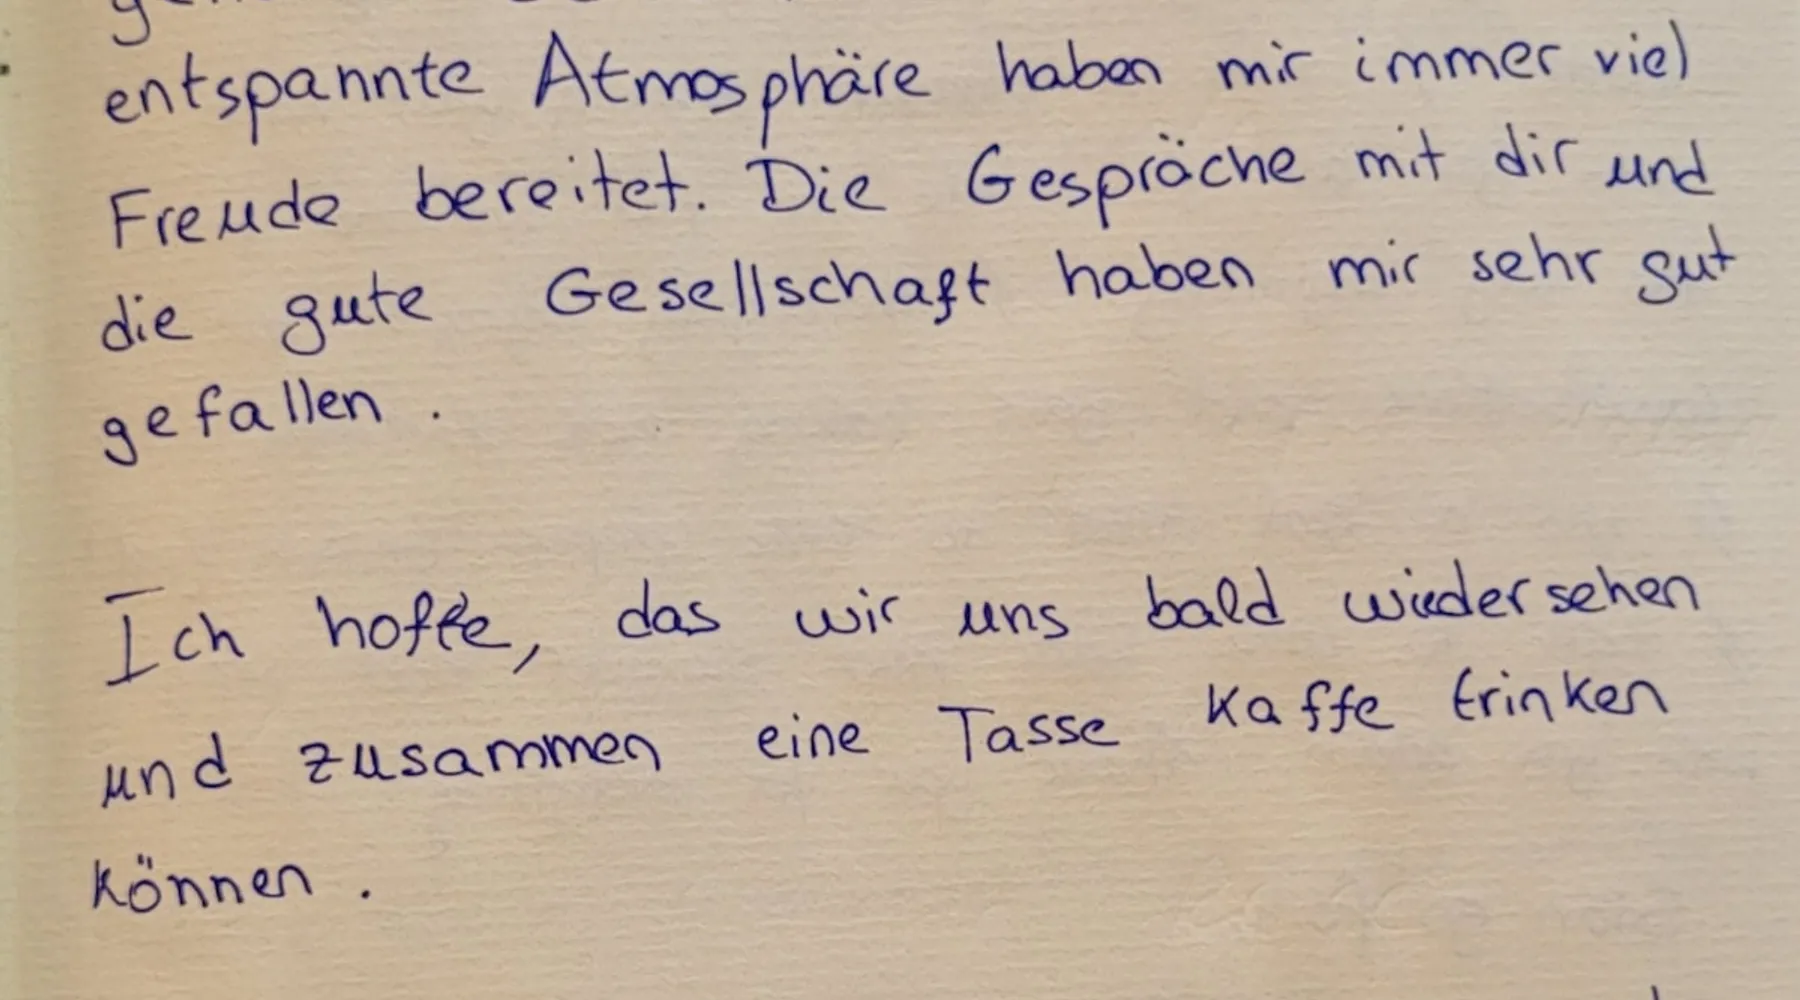 entspannte Atmosphäre haben mir immer viel
Freude bereitet. Die Gespräche mit dir und
die gute Gesellschaft haben mir sehr gut
gefallen .
Ich hoffe, das wir uns bald wiedersehen
und zusammen eine Tasse Kaffe trinken
können .